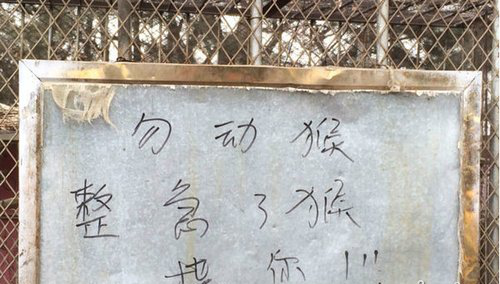 勿动猴
整急了猴
你!!!